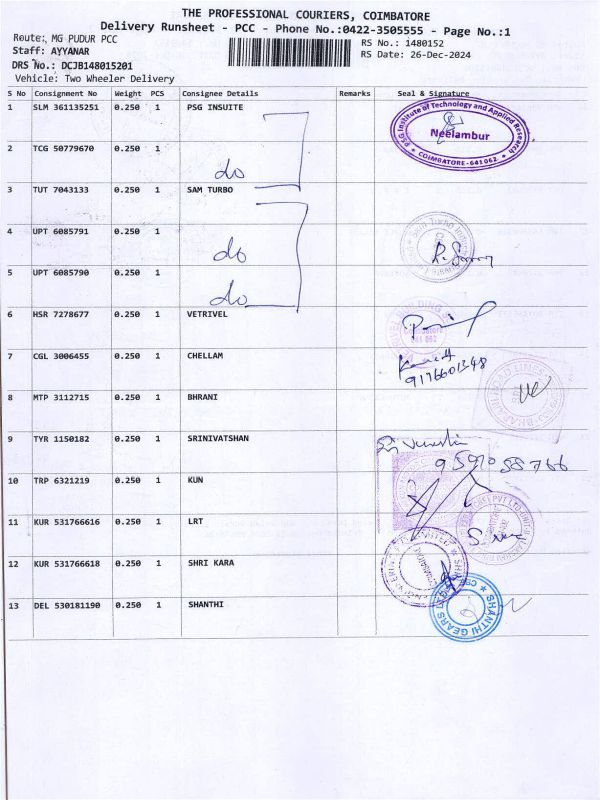 THE PROFESSIONAL COURIERS, COIMBATORE
Delivery Runsheet - PCC - Phone No.:0422-3505555 - Page No.:1
Reute: MG PUDUR PCC
Staff: AYYANAR
DRS No.: DCJB148015201
Vehicle: Two Wheeler Delivery
RS No.: 1480152
RS Date: 26-Dec-2024
S No Consignment No Weight PCS Consignee Details Remarks Seal & Signature
1 SLM 361135251 0.250 1 PSG INSUITE
PSG Institute of Technology and Applied Research
Neelambur
COIMBATORE-641062
2 TCG 50779670 0.250 1 do
3 TUT 7043133 0.250 1 SAM TURBO
4 UPT 6085791 0.250 1 do
5 UPT 6085790 0.250 1 do
6 HSR 7278677 0.250 1 VETRIVEL
7 CGL 3006455 0.250 1 CHELLAM
8 MTP 3112715 0.250 1 BHRANI
9 TYR 1150182 0.250 1 SRINIVATSHAN
10 TRP 6321219 0.250 1 KUN
11 KUR 531766616 0.250 1 LRT
12 KUR 531766618 0.250 1 SHRI KARA
13 DEL 530181190 0.250 1 SHANTHI
SHANTHI GEARS